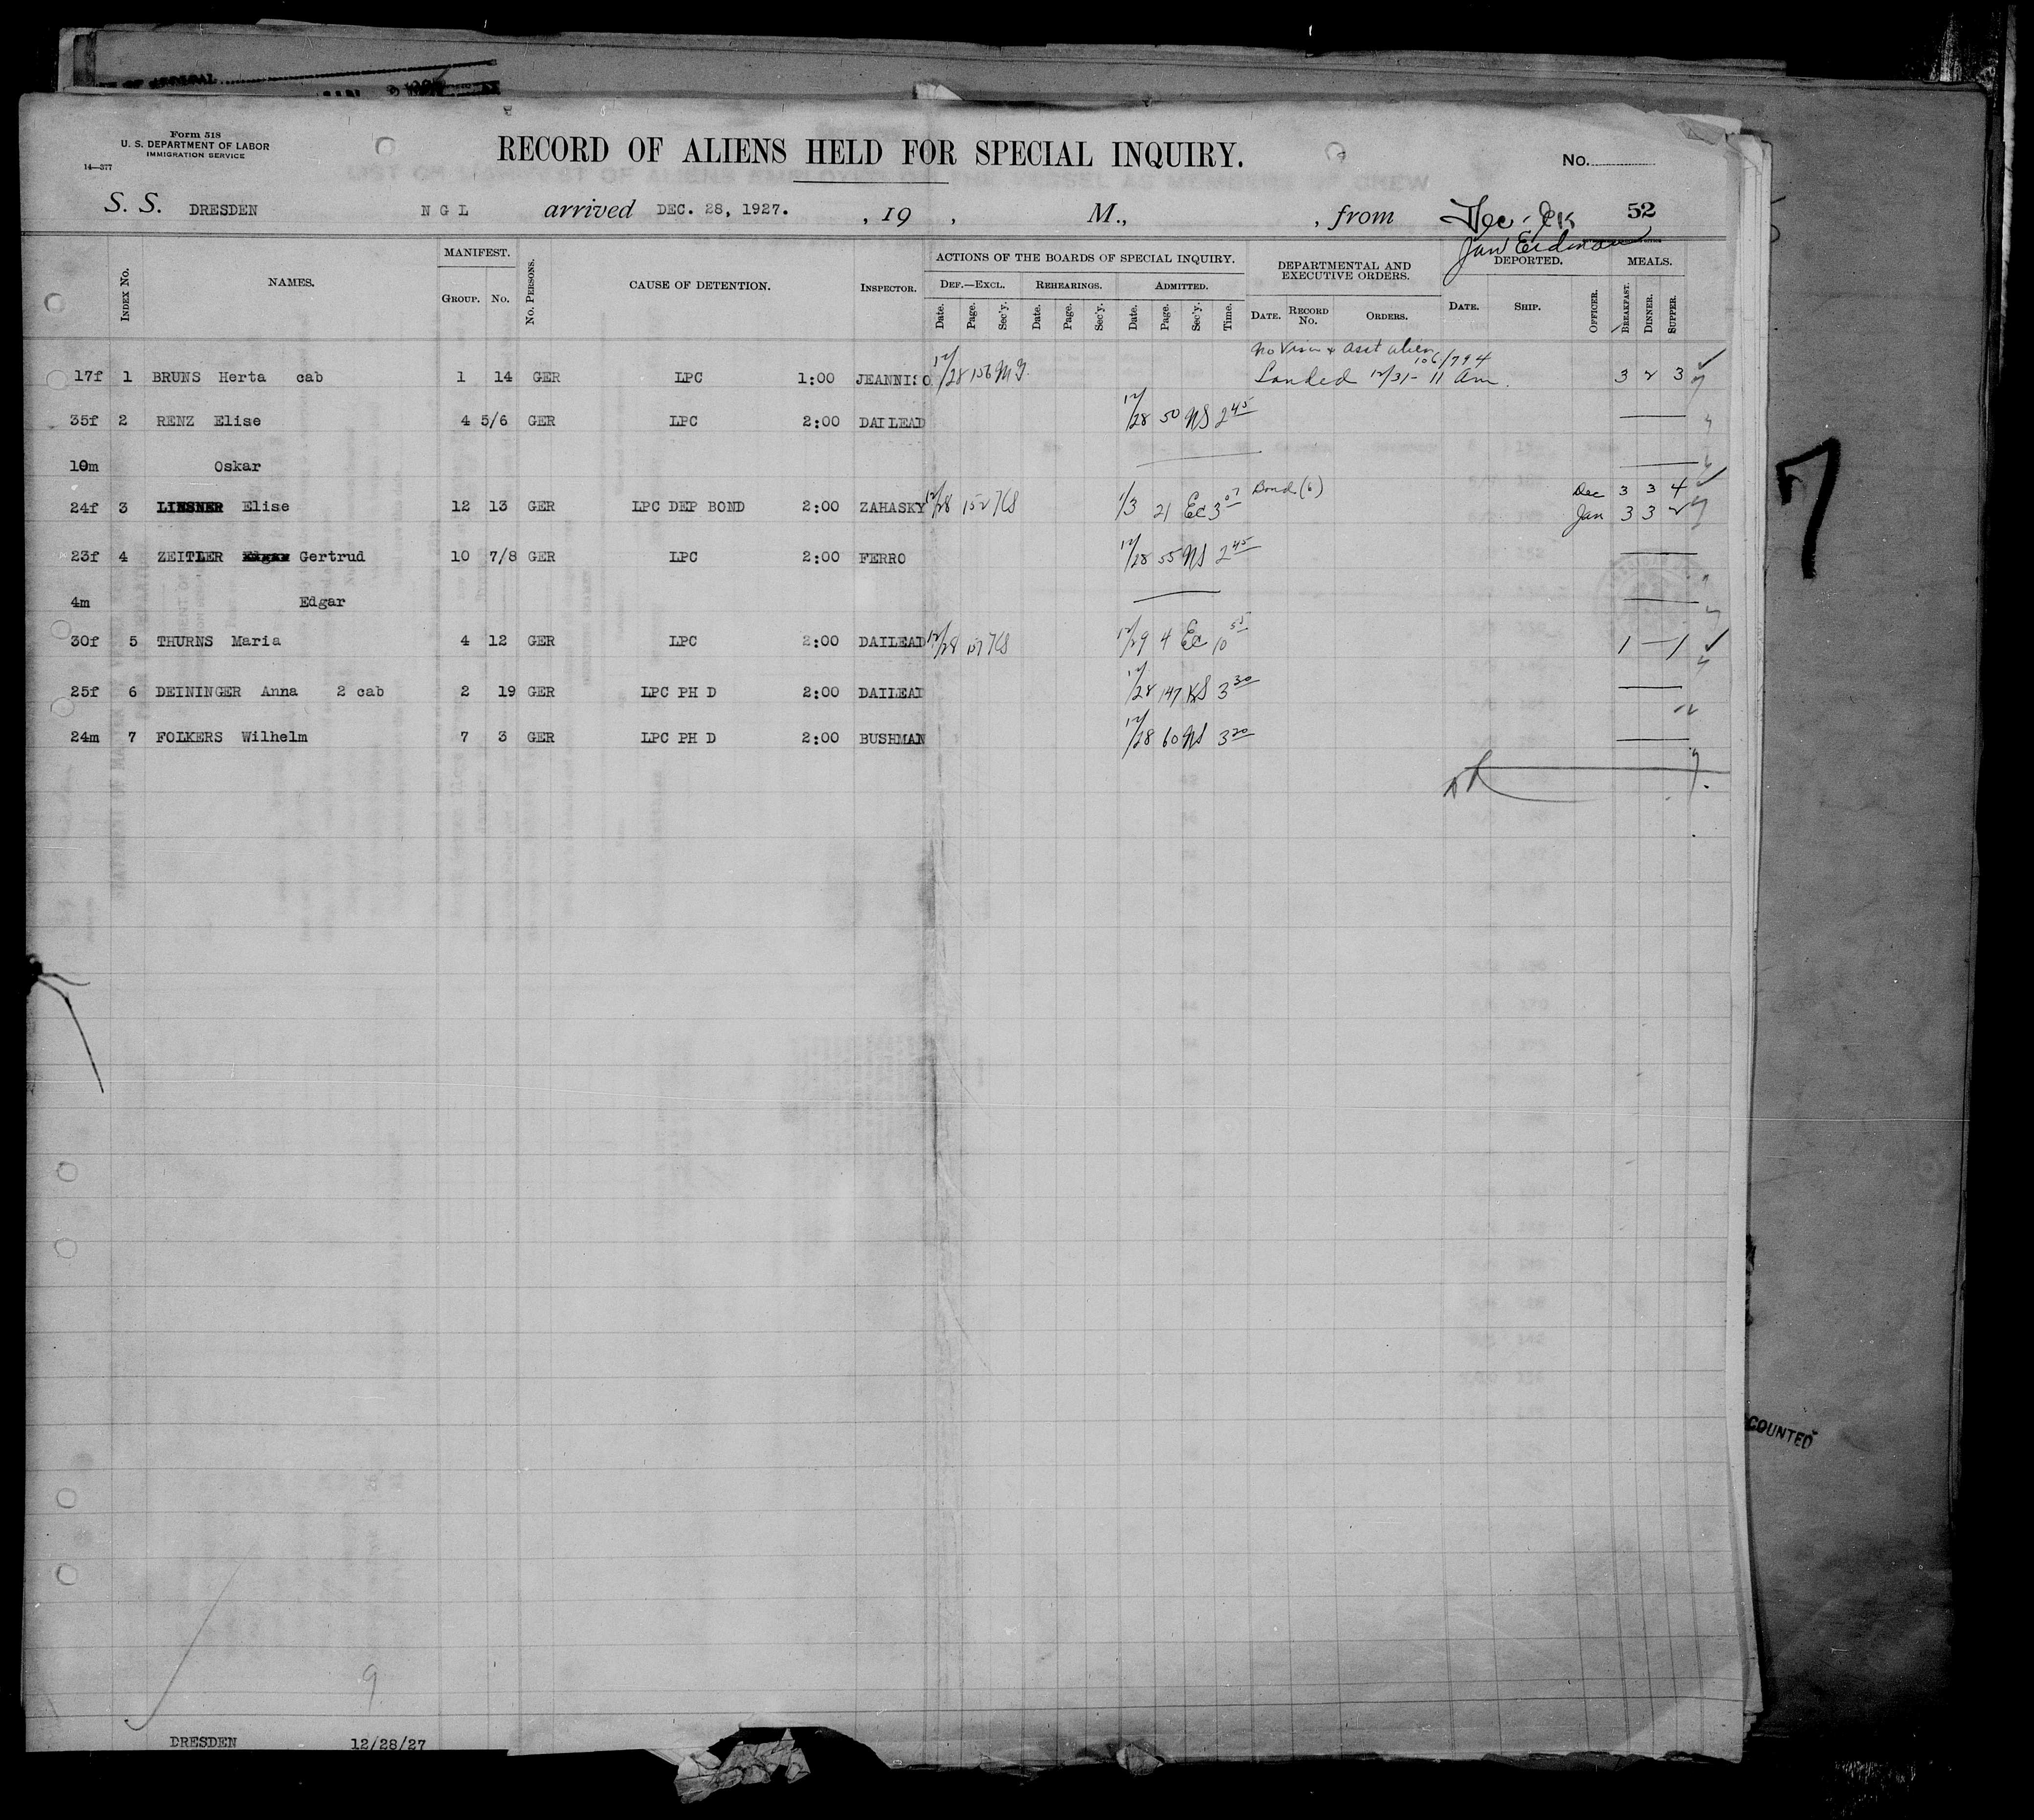 Form 518
U. S. DEPARTMENT OF LABOR
IMMIGRATION SERVICE
14—377
RECORD OF ALIENS HELD FOR SPECIAL INQUIRY.
No.
S. S. DRESDEN N G L arrived DEC. 28, 1927. , 19 , M., , from 52
Index No. NAMES. MANIFEST. Group. No. No. Persons. CAUSE OF DETENTION. Inspector. ACTIONS OF THE BOARDS OF SPECIAL INQUIRY. Def.—Excl. Date. Page. Sec'y. Rehearings. Date. Page. Sec'y. Admitted. Date. Page. Sec'y. Time. DEPARTMENTAL AND EXECUTIVE ORDERS. Date. Record No. Orders. DEPORTED. Date. Ship. Officer. MEALS. Breakfast. Dinner. Supper.
17f 1 BRUNS Herta cab 1 14 GER LPC 1:00 JEANNISO 12/28 156 106/794 Landed 12/31 - 11 Am. 3 2 3
35f 2 RENZ Elise 4 5/6 GER LPC 2:00 DAILEAD 12/28 50 NS 2 45
10m Oskar
24f 3 LIESNER Elise 12 13 GER LPC DEP BOND 2:00 ZAHASKY 12/28 152 KS 1/3 21 Ec 3 07 Bond (6) Dec 3 3 4
Jan 3 3 2
23f 4 ZEITLER Edgar Gertrud 10 7/8 GER LPC 2:00 FERRO 12/28 55 NS 2 45
4m Edgar
30f 5 THURNS Maria 4 12 GER LPC 2:00 DAILEAD 12/28 157 KS 12/29 4 Ec 10 55 1 — 1
25f 6 DEININGER Anna 2 cab 2 19 GER LPC PH D 2:00 DAILEAD 12/28 147 KS 3 30
24m 7 FOLKERS Wilhelm 7 3 GER LPC PH D 2:00 BUSHMAN 12/28 60 NS 3 20
7
COUNTED
9
DRESDEN 12/28/27